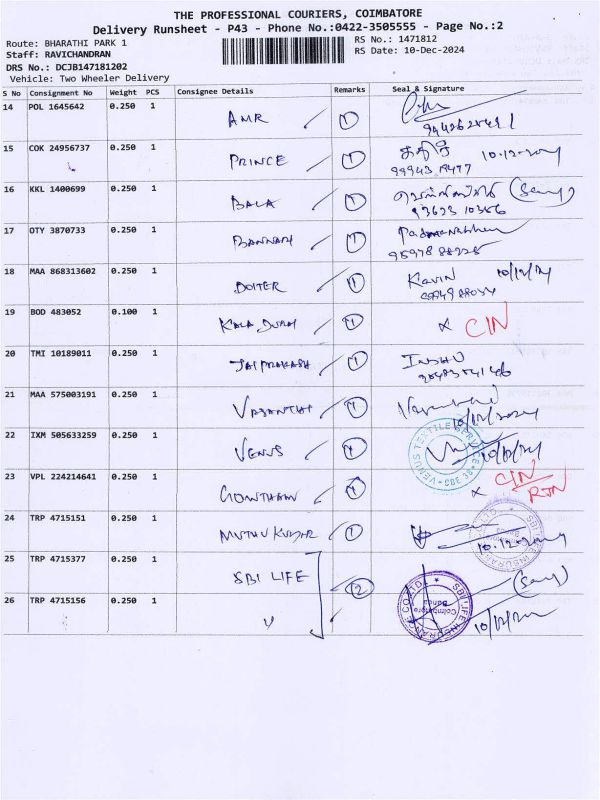 THE PROFESSIONAL COURIERS, COIMBATORE
Delivery Runsheet - P43 - Phone No.:0422-3505555 - Page No.:2
Route: BHARATHI PARK 1 RS No.: 1471812
Staff: RAVICHANDRAN RS Date: 10-Dec-2024
DRS No.: DCJB147181202
Vehicle: Two Wheeler Delivery
S No Consignment No Weight PCS Consignee Details Remarks Seal & Signature
14 POL 1645642 0.250 1 AMR 1
15 COK 24956737 0.250 1 PRINCE 1 10.12.2024
99943 19477
16 KKL 1400699 0.250 1 BALA 1
93623 10386
17 OTY 3870733 0.250 1 BANNARI 1
95978 88225
18 MAA 868313602 0.250 1 DOITER 1 Kavin 10/12/24
19 BOD 483052 0.100 1 KALA DURAI 1 x C/N
20 TMI 10189011 0.250 1 JAI PRAKASH 1 INDHU
21 MAA 575003191 0.250 1 VASANTHI 1
10/12/2024
22 IXM 505633259 0.250 1 VENUS 1 VENUS TEXTILE SERVICE CBE 10/12/24
23 VPL 224214641 0.250 1 GOWTHAM 1 x C/N
RTN
24 TRP 4715151 0.250 1 MUTHU KUMAR 1 10.12.2024
25 TRP 4715377 0.250 1 SBI LIFE 2 SBI LIFE INSURANCE CO. LTD. Coimbatore
26 TRP 4715156 0.250 1 〃